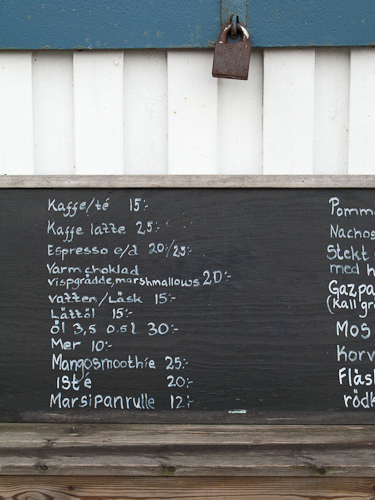 Kaffe/té 15:-
Kaffe latte 25:-
Espresso e/d 20:/25:-
Varm choklad
vispgrädde, marshmallows 20:-
vatten/Läsk 15:-
Lättöl 15:-
Öl 3,5 0.5l 30:-
Mer 10:-
Mangosmoothie 25:-
Isté 20:-
Marsipanrulle 12:-
Pomm
Nachos
Stekt
med h
Gazpa
(kall gr
Mos
Korv
Fläs
rödk